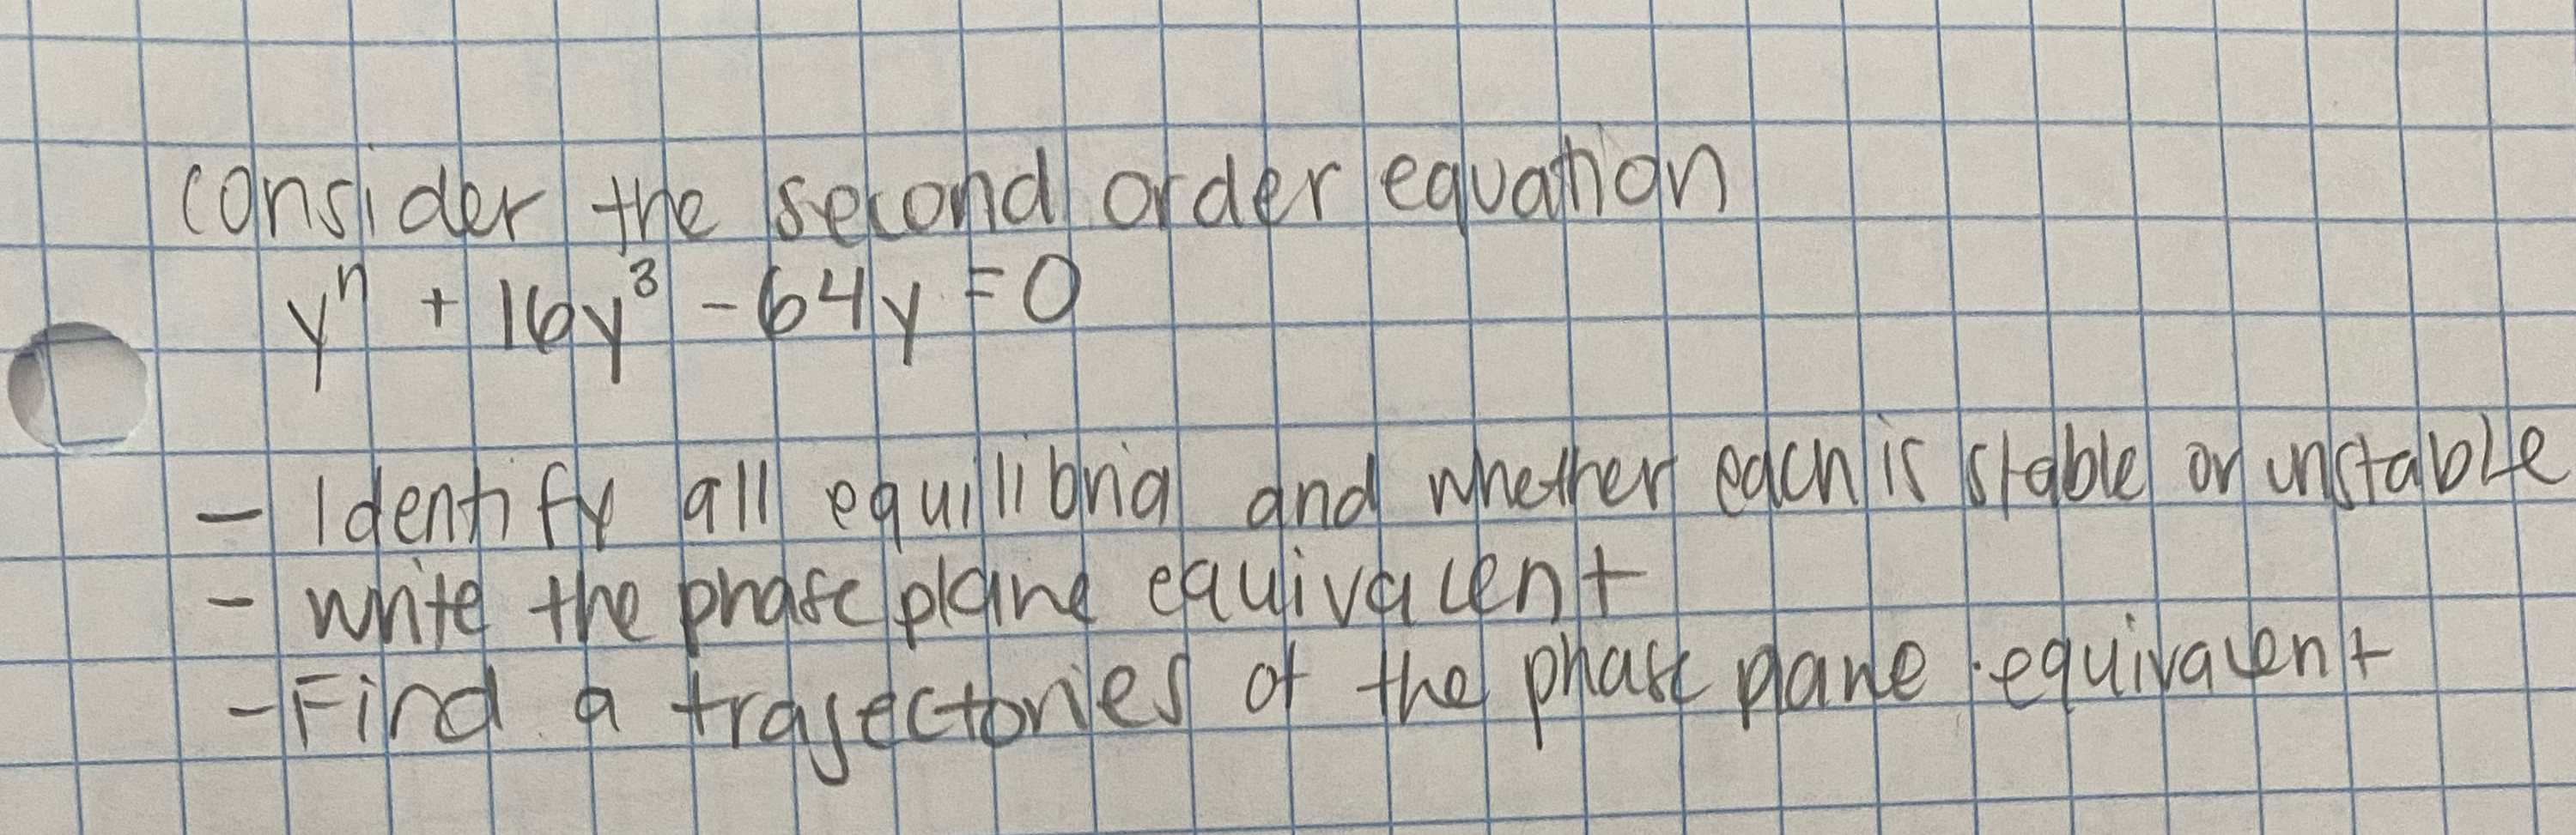 consider the second order equation
y'' + 16y³ - 64y = 0
- Identify all equilibria and whether each is stable or unstable
- write the phase plane equivalent
- Find a trajectories of the phase plane equivalent